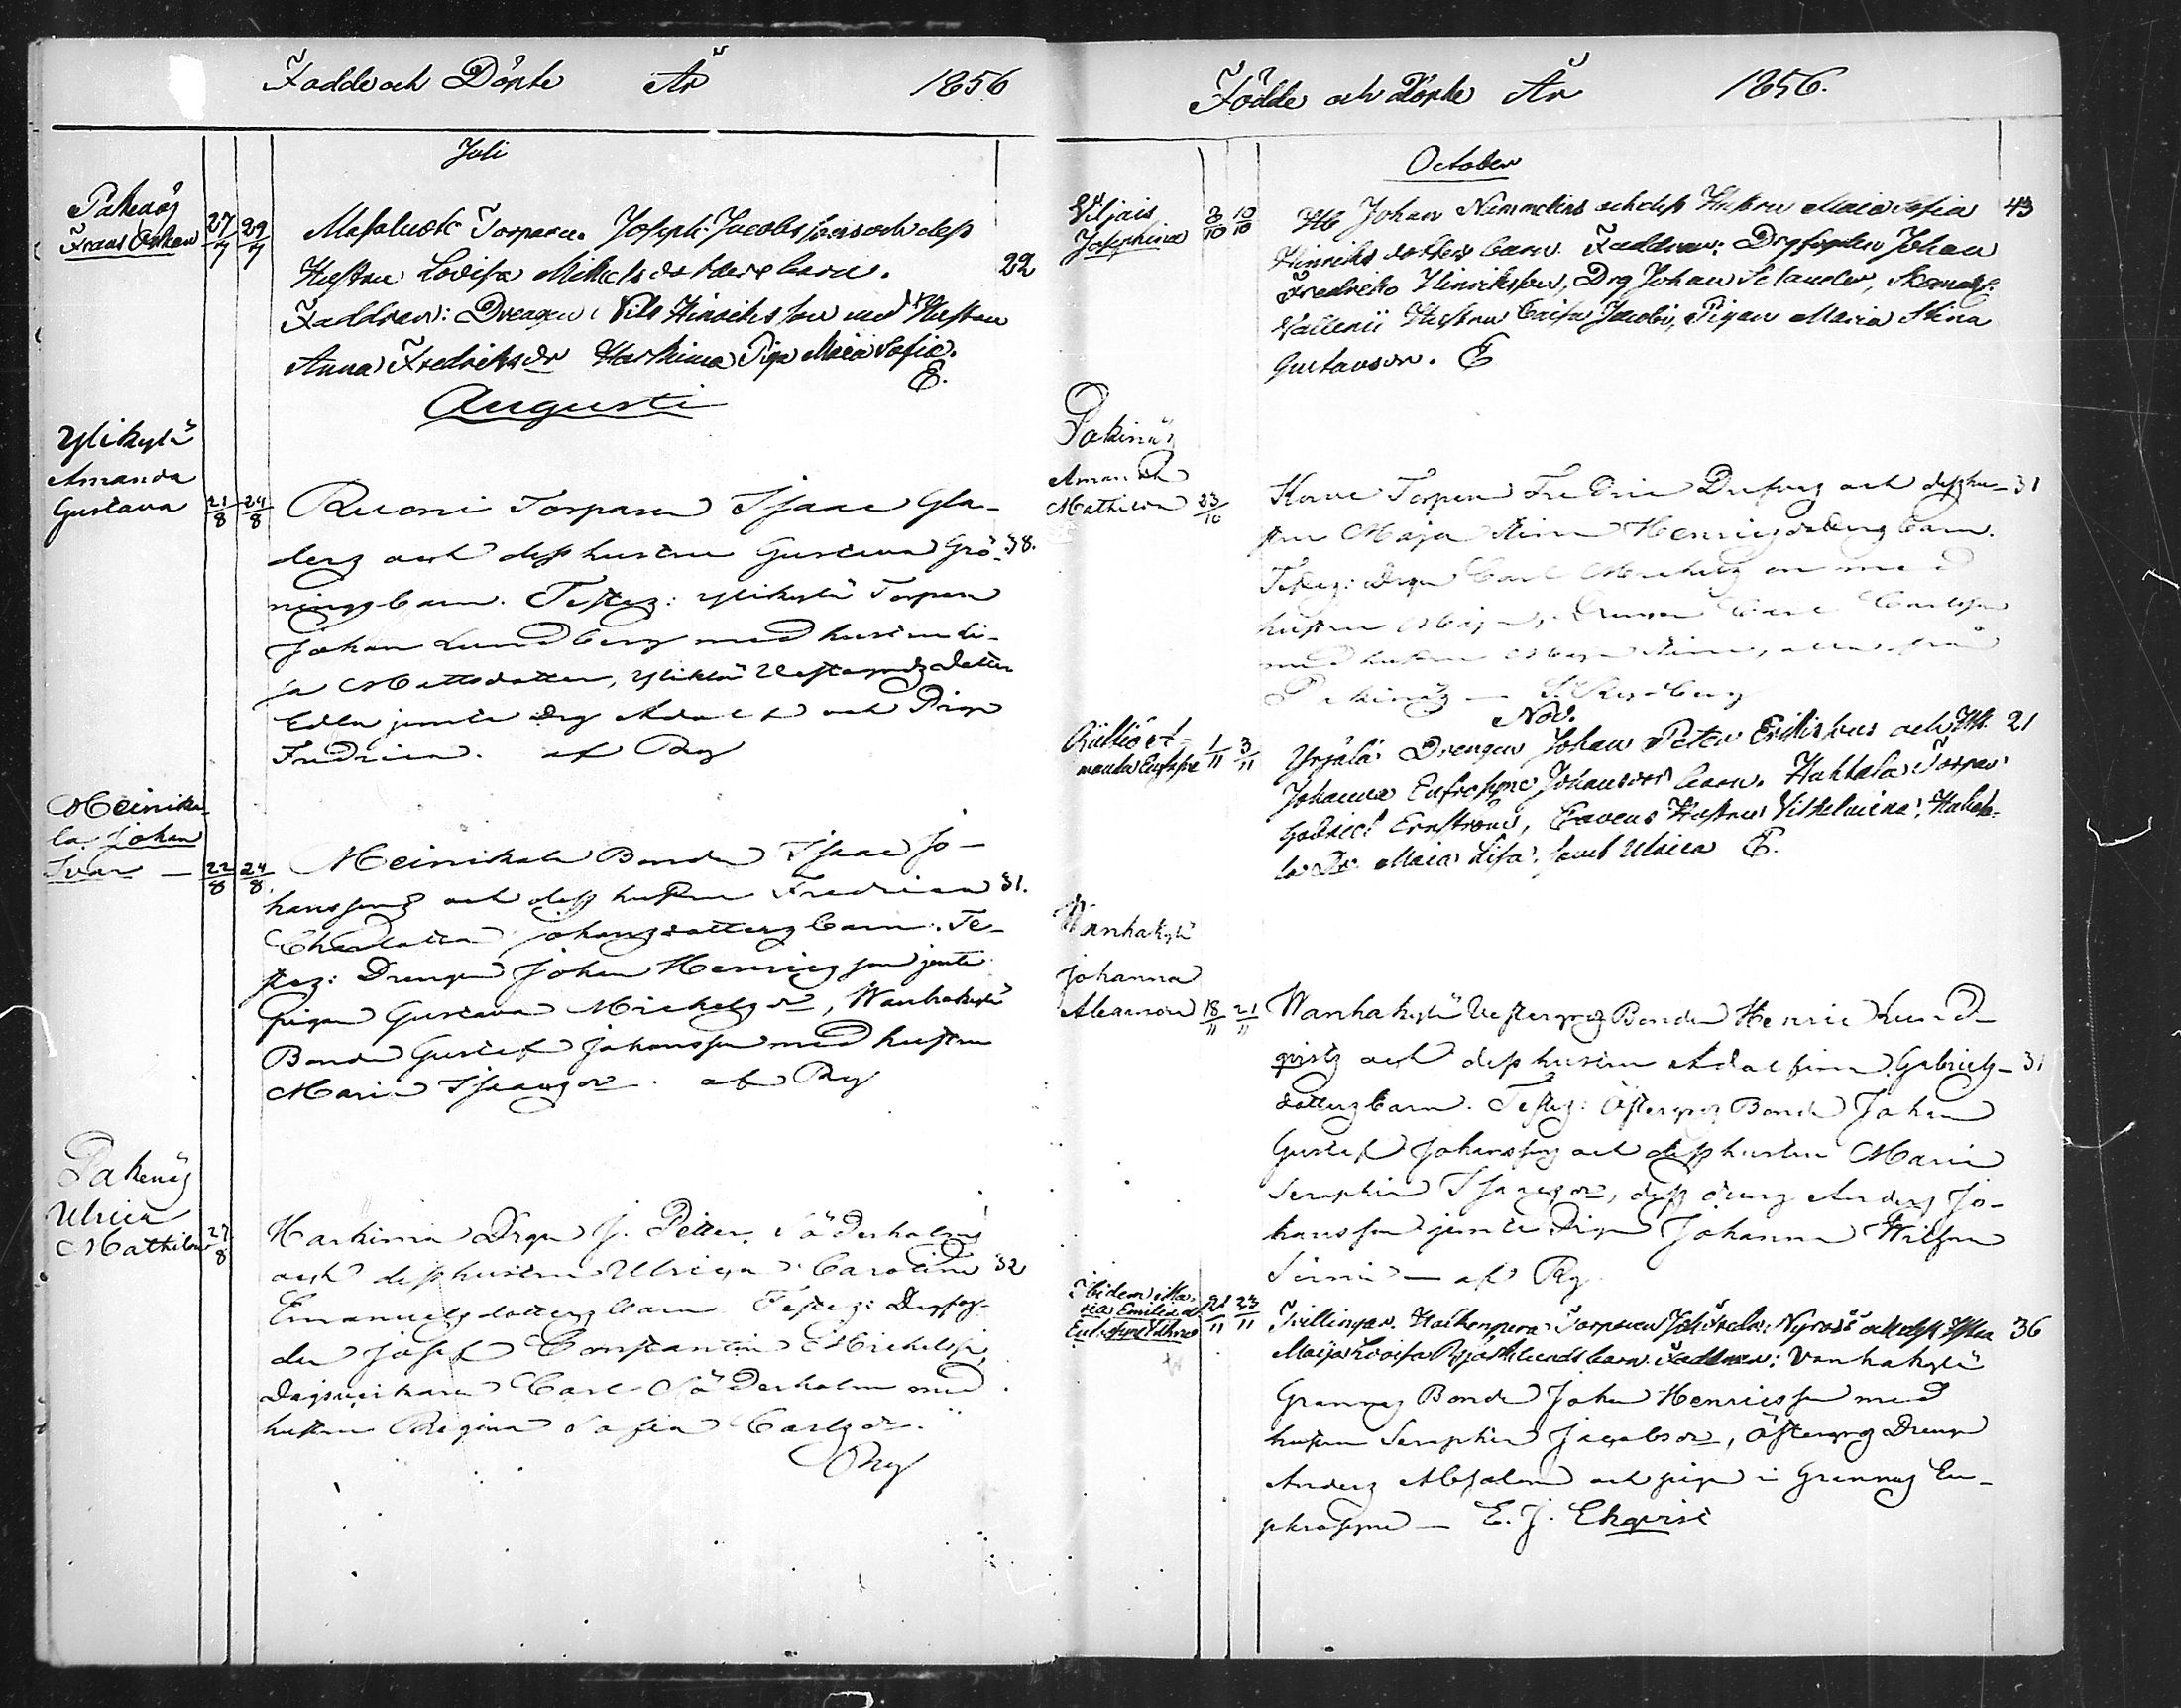 Fodde och Döpte År 1856
Juli
Pakenäs
Frans Oskar 27/7 29/7
Torparen Joseph Jacobssons och dess
Hustru Lovisa Mikkelsdotters barn. 22
Faddrar: Drengen Nils Hinrikssson med Hustru
Anna Fredriksdr Harkima Piga Maia Sofia.
E.
Augusti
Ylikylä
Amanda
Gustava 21/8 24/8
Ruoni Torparen Isaac Gla-
bergs och dess hustru Gustava Grö- 38.
nings barn. Testes: Ylikylä Torparen
Johan Lundberg med hustru Li-
sa Mattsdotter, Ylikylä dotter
Edla jemte drg och Pigan
Fredrica. af Rbg
Meiniki-
la Johan
Ivar — 22/8 24/8
Meinikala Bonden Isaac Jo-
hanssons och dess hustru Fredrica 31.
Charlotta Johansdotters barn. Te-
stes: Drengen Johan Henricsson jemte
pigan Gustava Michelsdr, Wanhakylä
Bonden Gustaf Johansson med hustru
Maria Isaacsdr. af Rbg
Pakenäs
Ulrica
Mathilda 27/8
Harkima Drgn J. Petter Söderholms
och dess hustru Ulrica Carolina 32
Emanuelsdotters barn. Testes: Drgfog-
den Josef Constantin Michelsson,
Dagsverkaren Carl Söderholm med
hustru Regina Sofia Carlsdr.
Rbg
Födde och Döpte År 1856.
October
Viljais
Josephina 8/10 10/10
Johan Nummelins och dess Hustru Maia Sofia 43
Hinriksdotters barn. Faddrar: Drgfogden Johan
Fredrik Hinriksson, Drg Johan Selander,
Vallenii Hustru Caisa Jacobs, Pigan Maria Stina
Gustavsdr. E
Pakinäs
Amanda
Mathilda 23/10
Torparen Fredric och dess hu- 31
stru Maja Stina Henricsdotters barn.
Testes: drgn Carl Michelsson med
hustru Maja, Carl Carlsson
med hustru Maja Stina, alla från
Pakinäs —
Nov.
Rülliö A-
manda Eufrosyne 1/11 3/11
Yrjälä Drengen Johan Peter Erikssons och H. 21
Johanna Eufrosyne Johansdrs barn. Hakkala Torpar
Godric Ernström, Hustru Vilhelmina, Hakka-
la Dr. Maia Lisa, samt Ulrica E.
Wanhakylä
Johanna
Aleanora 18/11 21/11
Wanhakylä Vestergårds Bonden Henric Lund-
qvists och dess hustru Adolfina Gabriels- 31
dotters barn. Testes: Östergårds Bonden Johan
Gustaf Johansson och dess hustru Maria
Seraphia Isaacsdr, dess dreng Anders Jo-
hansson jemte Pigan Johanna
— af Rbg
Ibidem Ma-
ria Emilia och
21/11 23/11
Tvillingar. Torparen Nyroos och dess Hustru 36
Maija Lovisa Björklunds barn. Faddrar: Vanhakylä
Grannas Bonden Johan Henricsson med
hustru Seraphia Jacobsdr, Östergårds Drengen
Anders Absalon och pigan i Grannas Eu-
phrosyne — E. J. Ekqvist